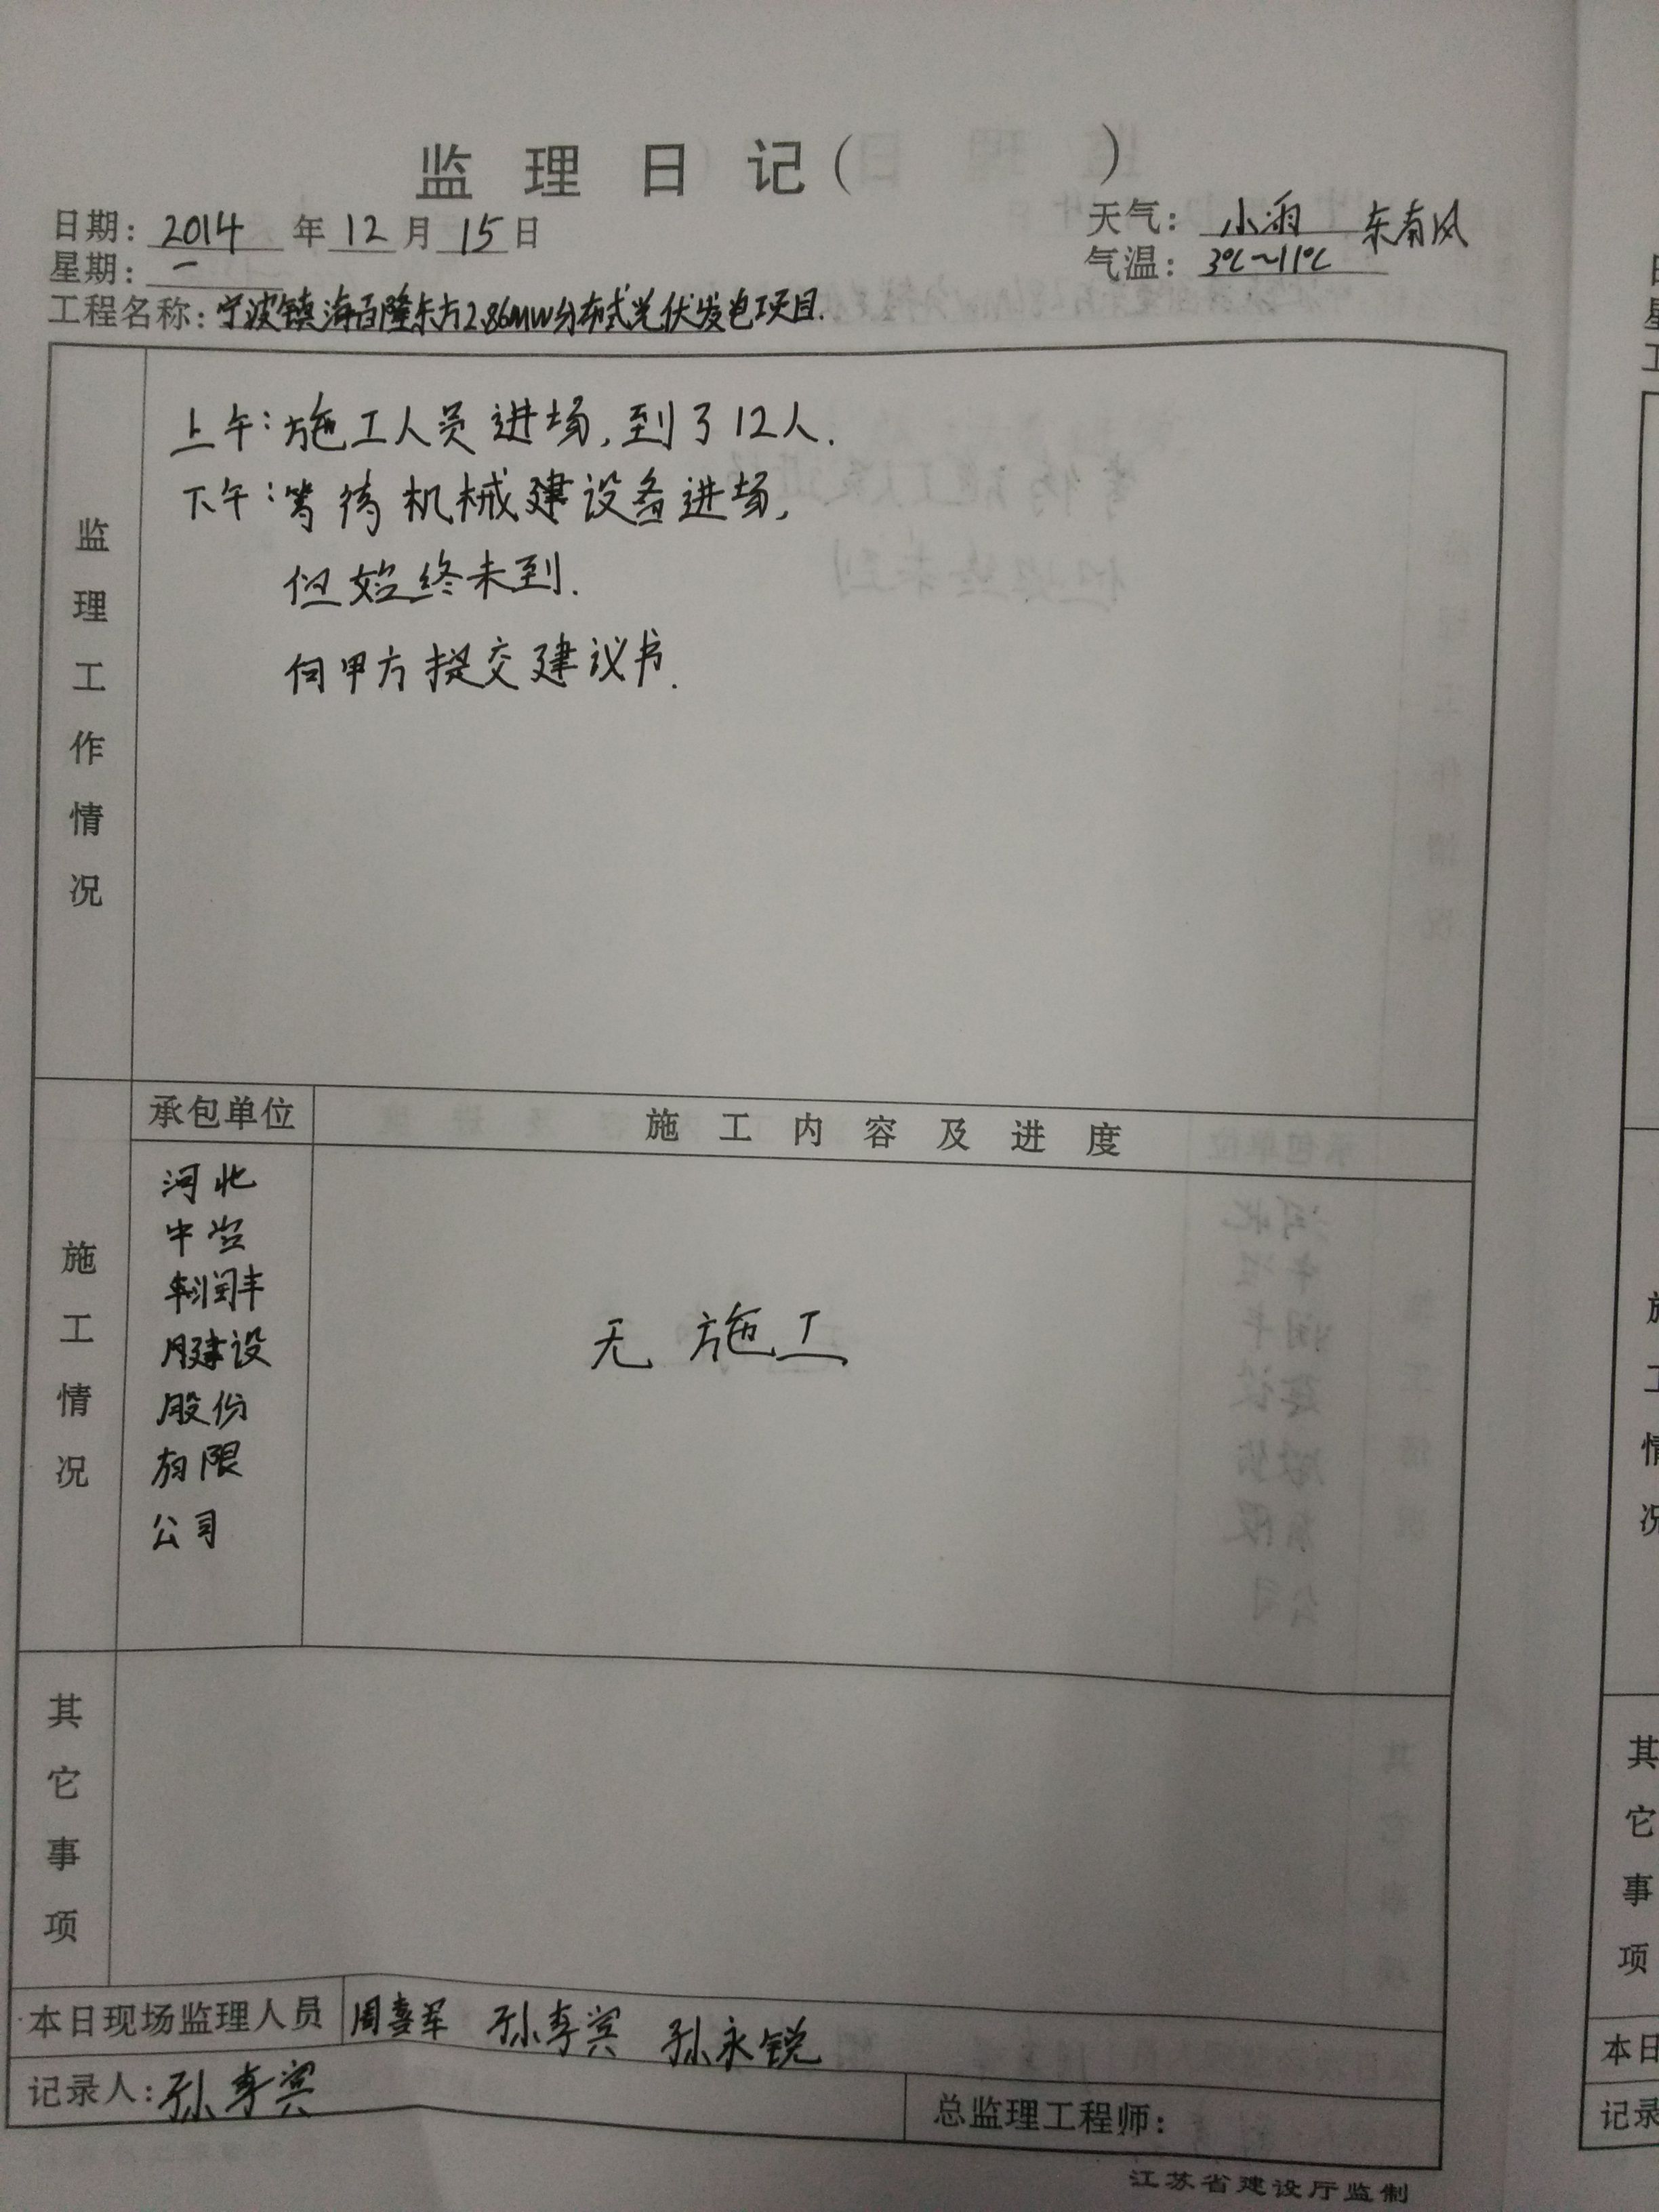 监理日记（ ）
日期：2014年12月15日 天气：小雨 东南风
星期：一 气温：3℃~11℃
工程名称：宁波镇海百隆东方2.86MW分布式光伏发电项目.
监理工作情况
上午：施工人员进场，到了12人.
下午：等待机械建设备进场，
但始终未到.
向甲方提交建议书.
施工情况
承包单位 施工内容及进度
河北
润丰
建设
股份
有限
公司
无施工
其它事项
本日现场监理人员 周喜军 孙永锐
记录人：
总监理工程师：
江苏省建设厅监制